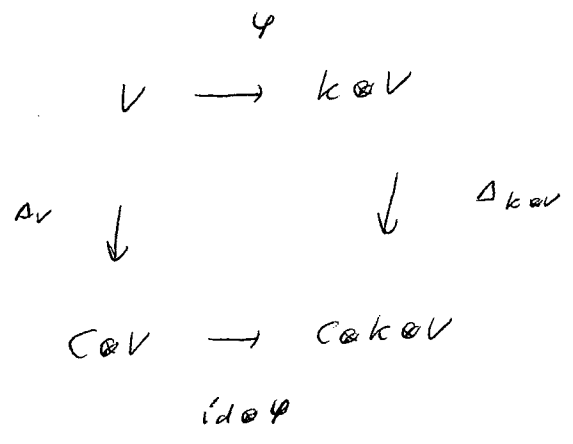 φ
V ⟶ k⊗V
Δ_V ↓ ↓ Δ_{k⊗V}
C⊗V ⟶ C⊗k⊗V
id⊗φ